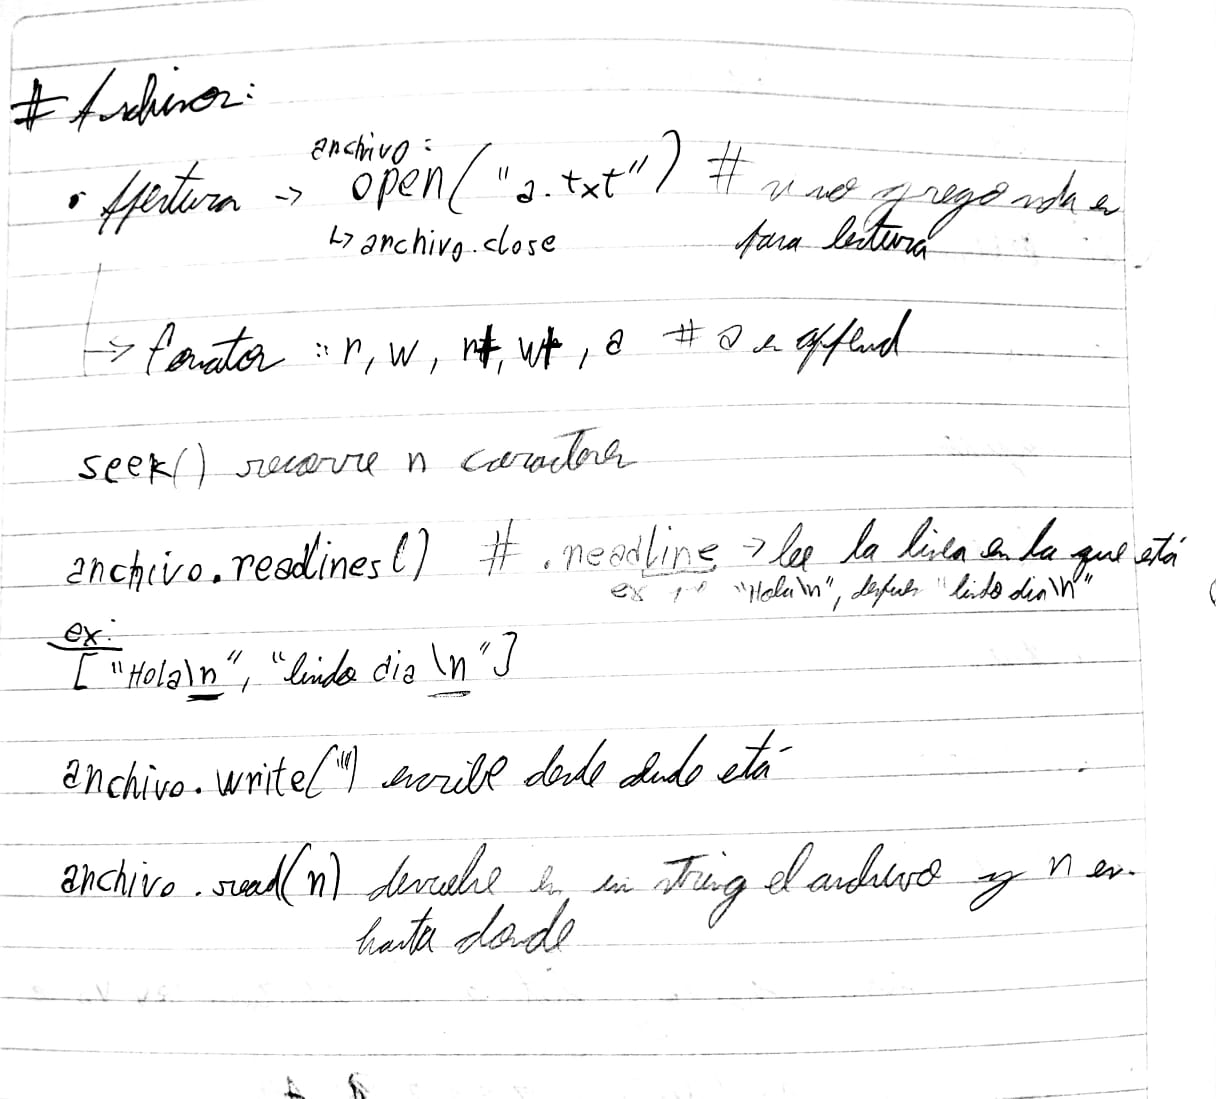 # Archivos:
archivo:
• Apertura -> open("a.txt") # si no agrego nada es
↳ archivo.close para lectura
-> formatos :: r, w, r+, w+, a # a es append
seek() recorre n caracteres
archivo.readlines() # .readline -> lee la linea en la que está
ex "Hola\n", después "lindo dia\n"
ex:
["Hola\n", "lindo dia \n"]
archivo.write("") escribe desde donde está
archivo.read(n) devuelve en un string el archivo y n es
hasta donde